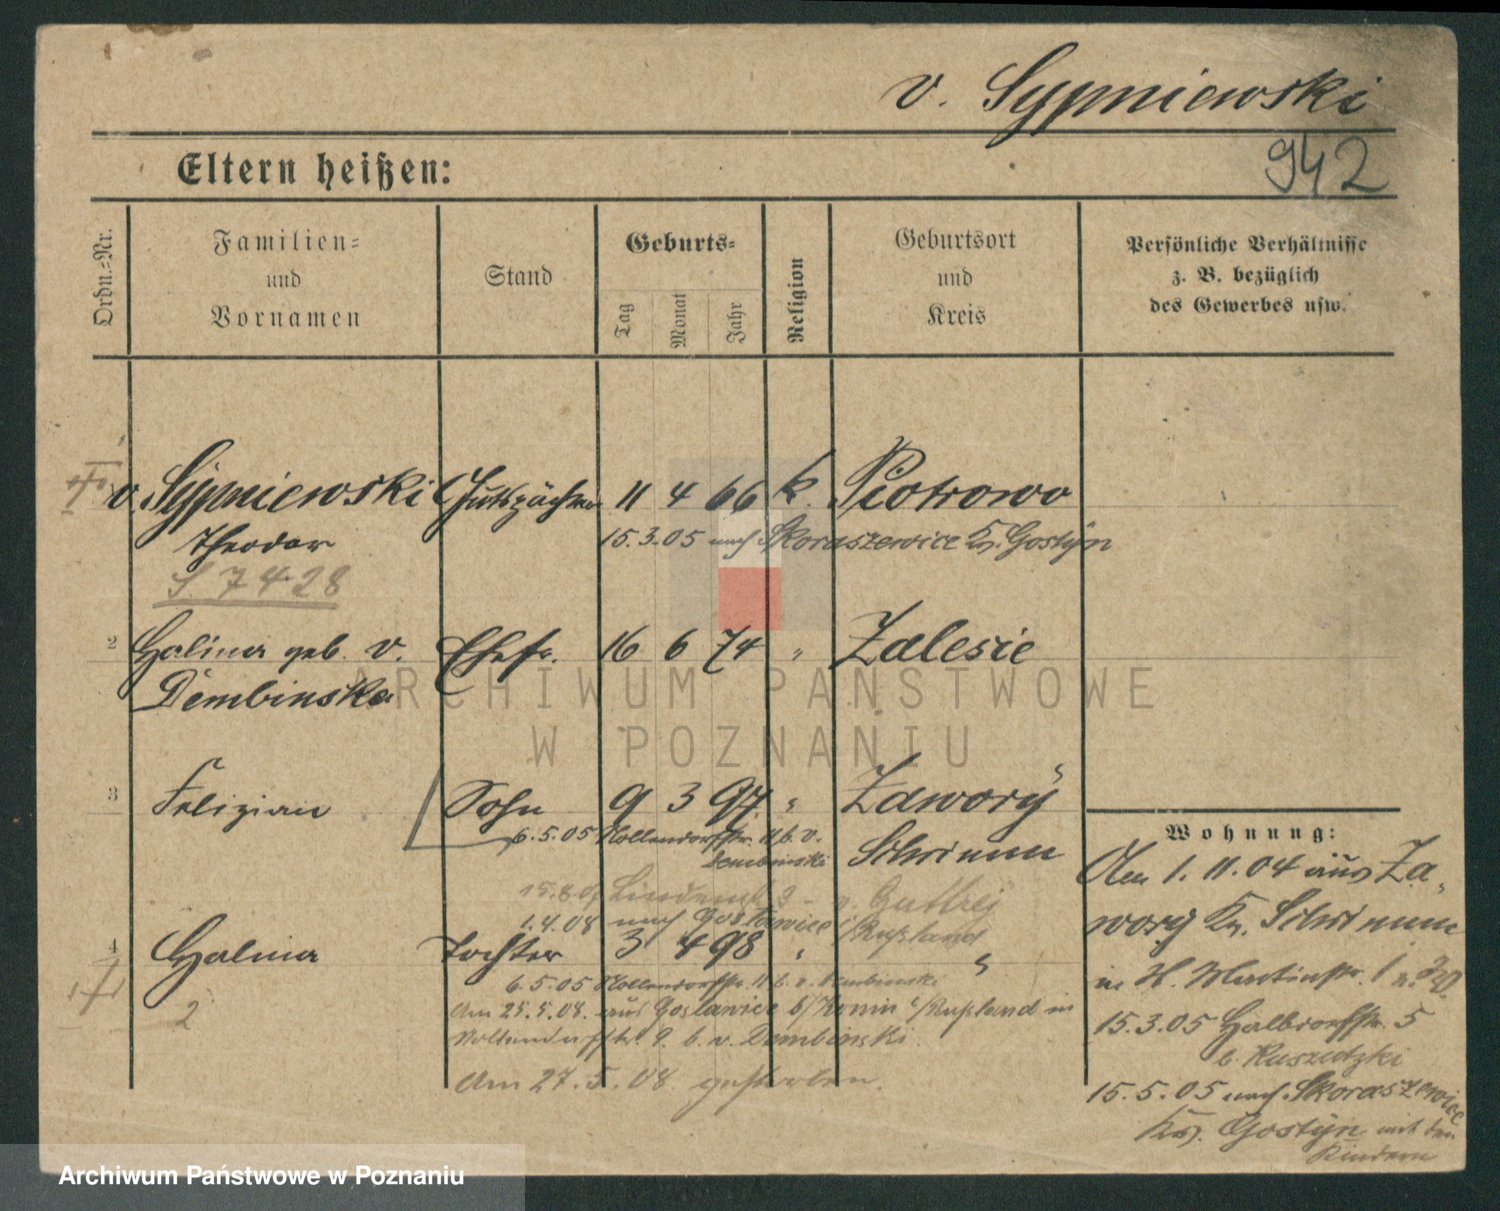 v. Sypniewski
942
Eltern heißen:
Ordn.-Nr.
Familien-
und
Vornamen
Stand
Geburts-
Tag
Monat
Jahr
Religion
Geburtsort
und
Kreis
Persönliche Verhältnisse
z. B. bezüglich
des Gewerbes usw.
v. Sypniewski Gutspächter 11 4 66 k. Piotrowo
Theodor 15.3.05 nach Skoraszewice Kr. Gostÿn
S. 7428
2 Halina geb. v. Ehefr. 16 6 74 " Zalesie
Dembinska
3 Felizian Sohn 9 3 97 " Zawory
6.5.05 Hollendorffstr. 11 b. v.
Dembinski
Schrimm
1.4.08 nach Goslawice
i/Rußland
4 Halina Tochter 3 4 98 " "
2
6.5.05 Hollendorffstr. 11 b. v. Dembinski
Am 25.5.08. aus Goslawice b/Konin i/Rußland in
9. b. v. Dembinski.
Am 27.5.08. gestorben.
Wohnung:
Am 1.11.04 aus Za-
wory Kr. Schrimm
in H. Martinstr.
15.3.05 Halbdorffstr. 5
b.
15.5.05 nach Skoraszewice
Kr. Gostÿn mit den
Kindern
ARCHIWUM PAŃSTWOWE
W POZNANIU
Archiwum Państwowe w Poznaniu